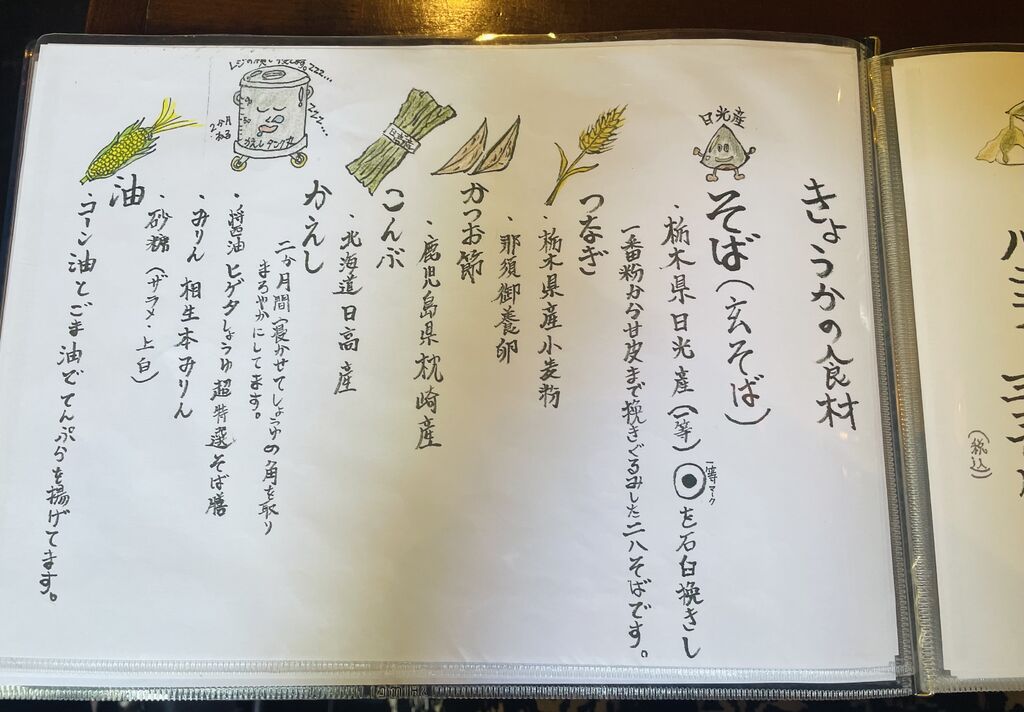 きょうかの食材
日光産
そば(玄そば)
・栃木県日光産(一等)
一等マーク
を石臼挽きし
一番粉から甘皮まで挽きぐるみした二八そばです。
つなぎ
・栃木県産小麦粉
・那須御養卵
かつお節
・鹿児島県枕崎産
日高産
こんぶ
・北海道日高産
zzz...
zzz...
2か月
ねる
かえしタンク
かえし
二か月間寝かせてしょうゆの角を取り
まろやかにしてます。
・醤油 ヒゲタしょうゆ超特選そば膳
・みりん 相生本みりん
・砂糖(ザラメ・上白)
油
・コーン油とごま油でてんぷらを揚げてます。
(税込)